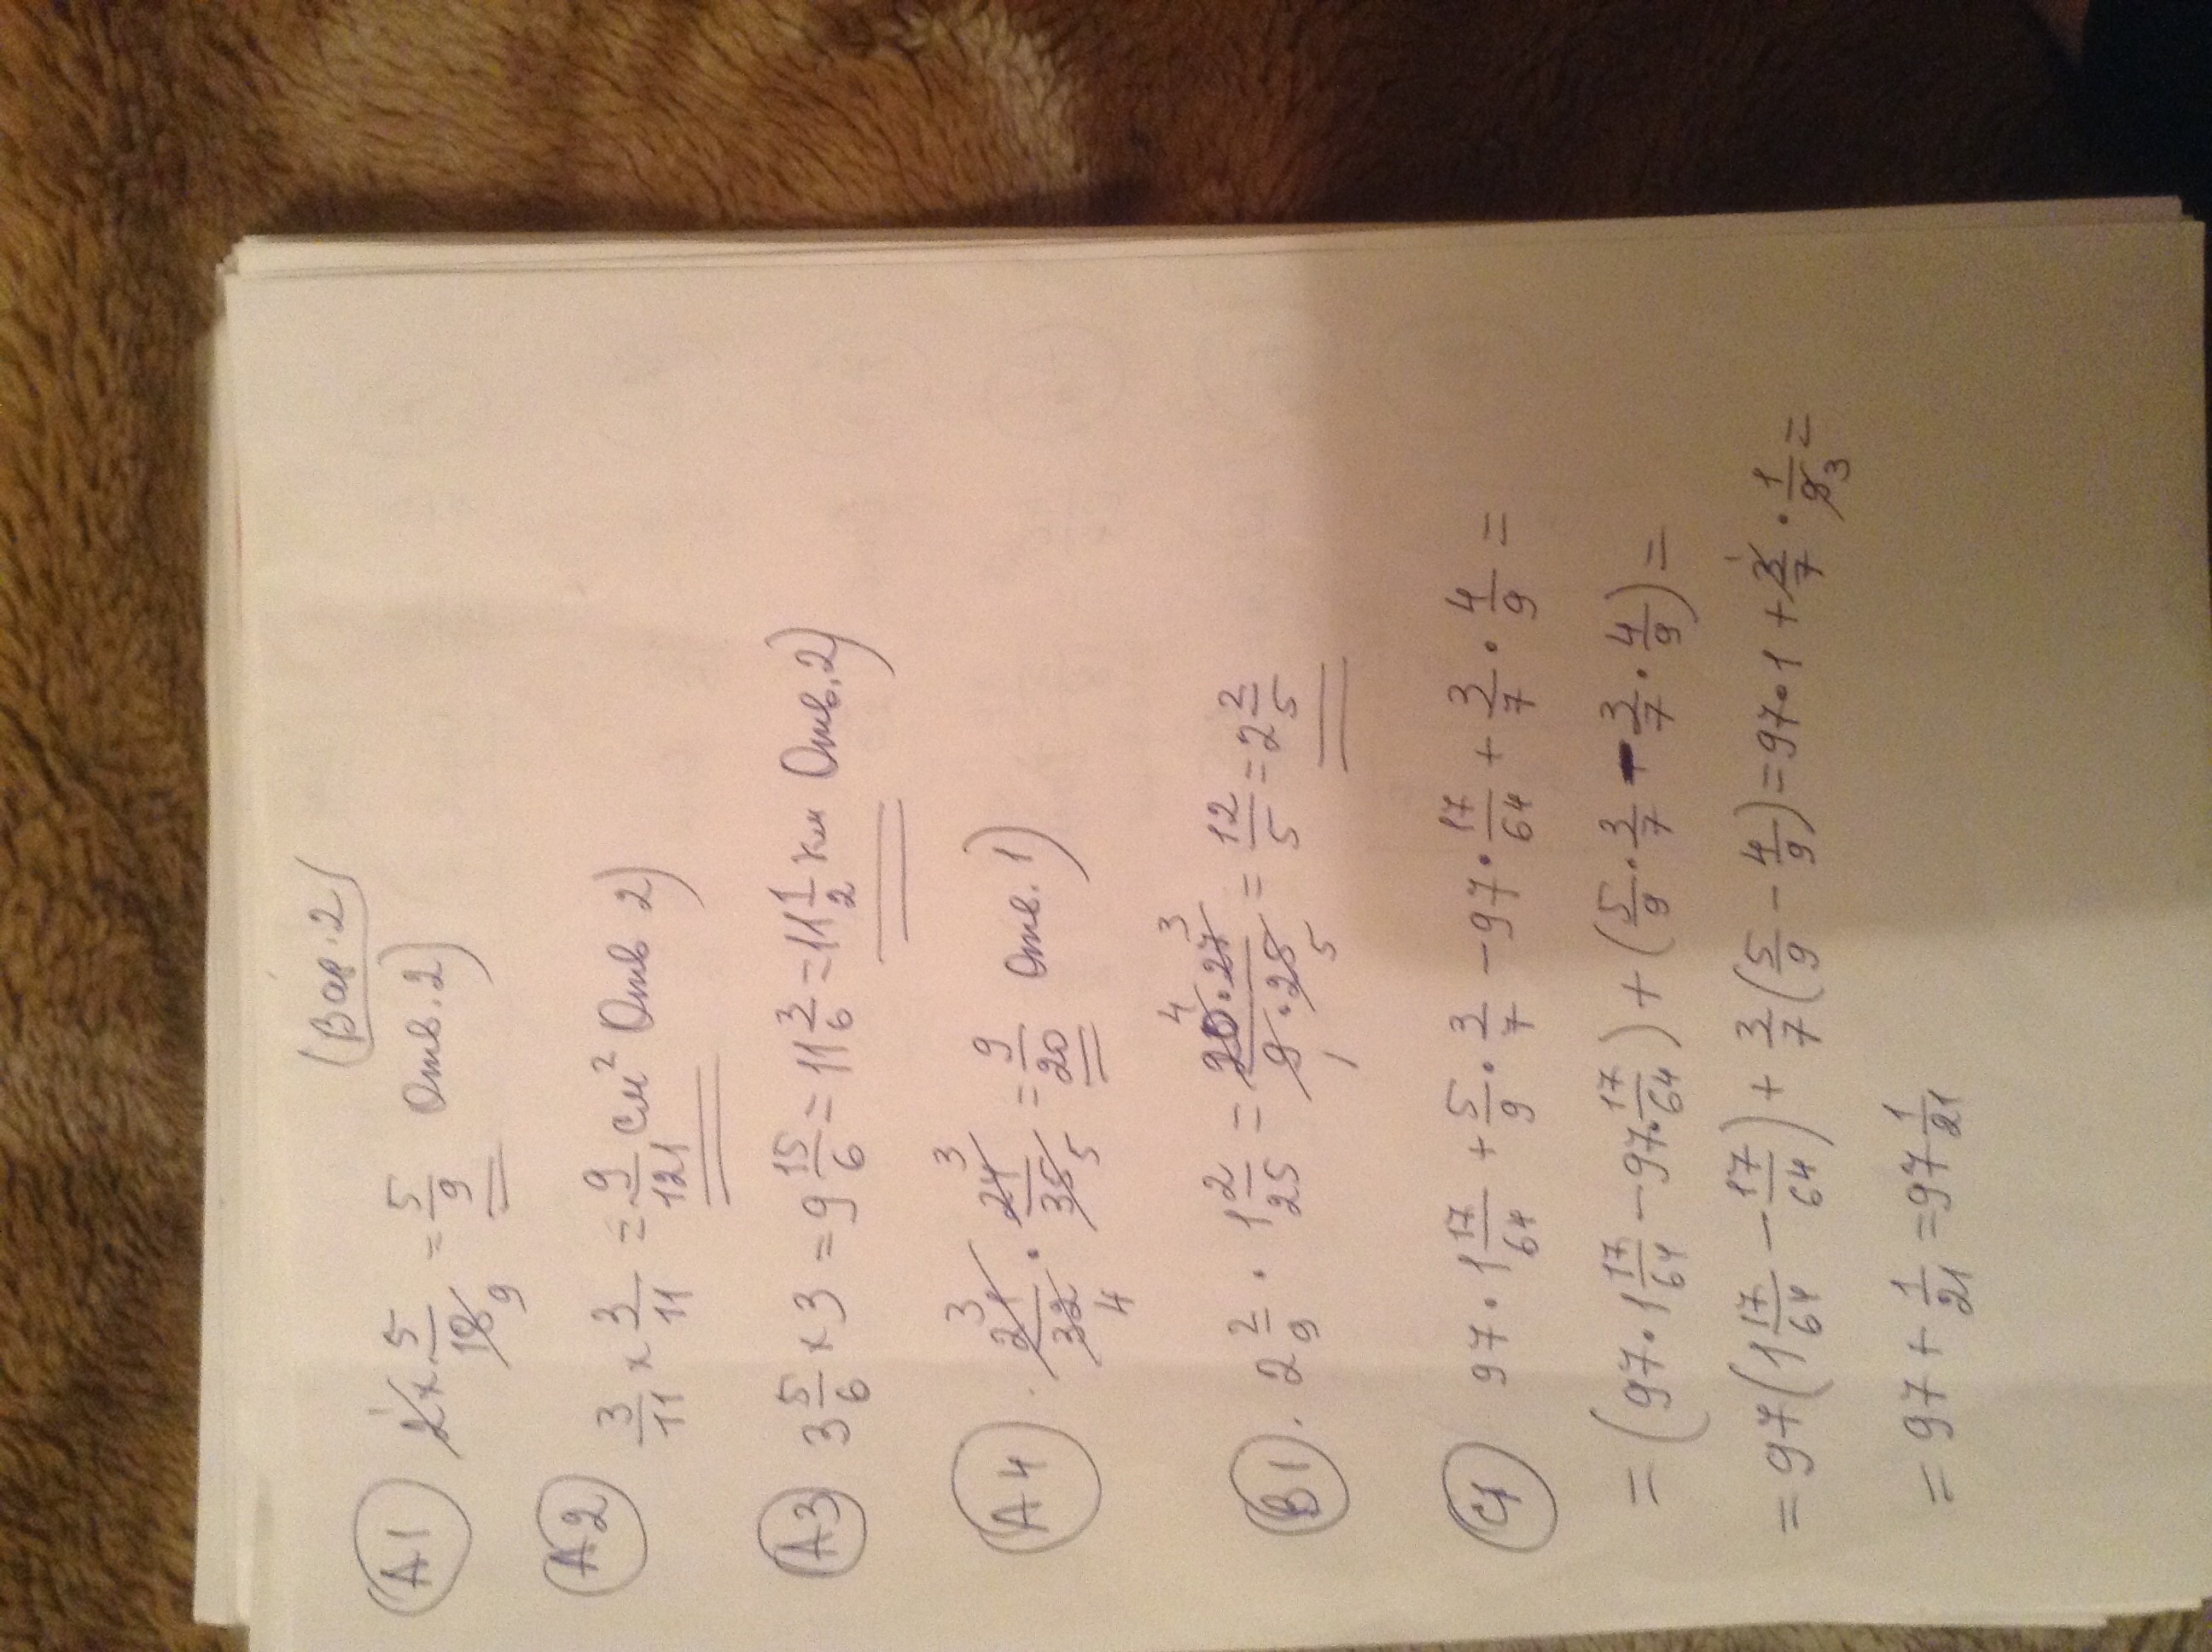 Вар. 2
А1 2 × 5/18 9 = 5/9 Отв. 2)
А2 3/11 × 3/11 = 9/121 см² Отв 2)
А3 3 5/6 × 3 = 9 15/6 = 11 3/6 = 11 1/2 км Отв. 2)
А4 . 21 3/32 4 · 24 3/35 5 = 9/20 Отв. 1)
В1 . 2 2/9 · 1 2/25 = 20 4 · 27 3/9 1 · 25 5 = 12/5 = 2 2/5
С1 97 · 1 17/64 + 5/9 · 3/7 − 97 · 17/64 + 3/7 · 4/9 =
= (97 · 1 17/64 − 97 · 17/64) + (5/9 · 3/7 - 3/7 · 4/9) =
= 97 (1 17/64 − 17/64) + 3/7 (5/9 − 4/9) = 97 · 1 + 3 1/7 · 1/9 3 =
= 97 + 1/21 = 97 1/21